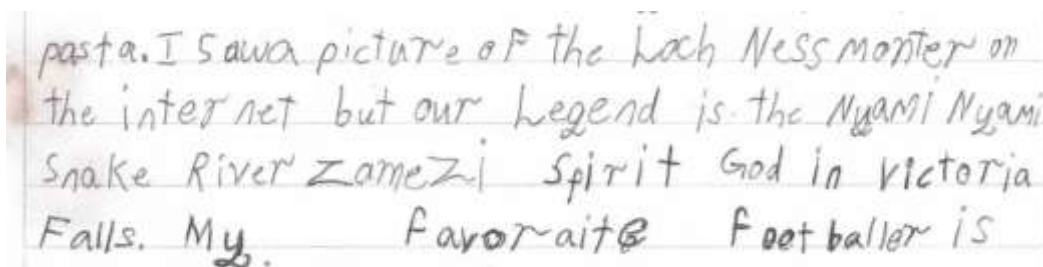 pasta. I Sawa picture of the Loch Ness monter on
the internet but our Legend is the Nyami Nyami
Snake River Zamezi Spirit God in victoria
Falls. My favoraite Footballer is